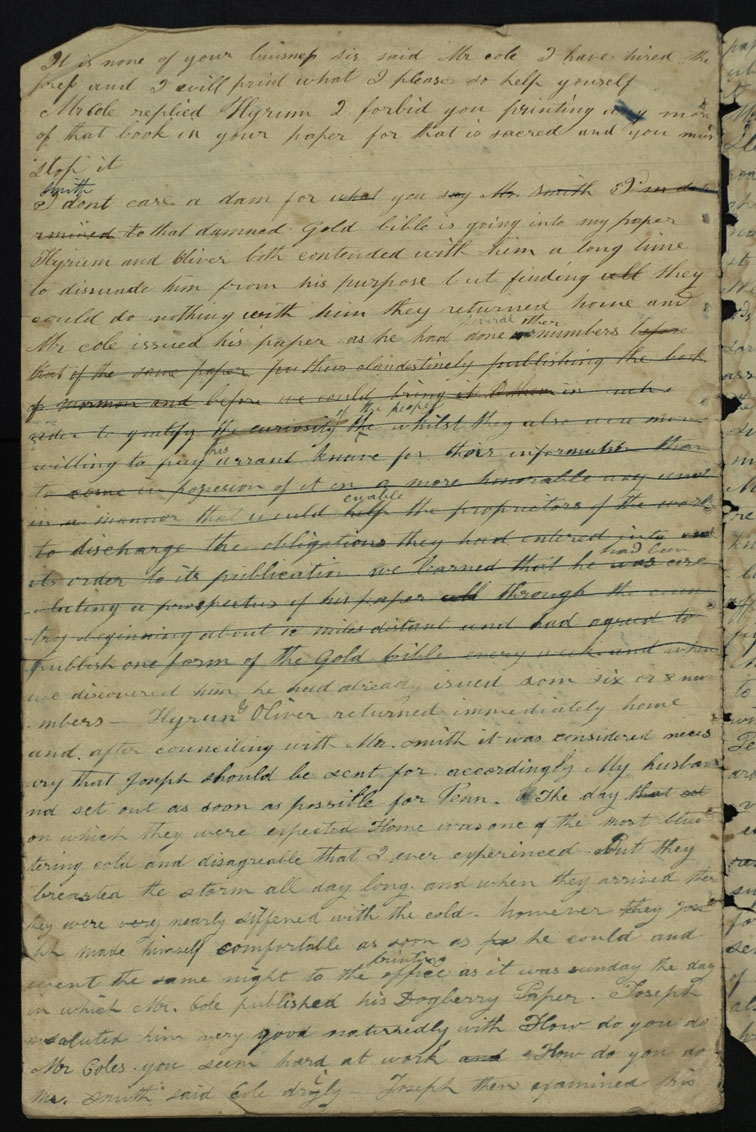 It is none of your buisness sir said Mr cole I have hired the
press and I will print what I please so help yourself
Mr Cole replied Hyrum I forbid you printing any more
of that book in your paper for that is sacred and you must
stop it
smith
I dont care a dam for what you say Mr. Smith I'm dete
rmined to that damned Gold bible is going into my paper
Hyrum and Oliver both contended with him a long time
to dissuade him from his purpose but finding all they
could do nothing with him they returned home and
other
Mr Cole issued his paper as he had done numbers before
that of the same paper clandestinely publishing the book
of mormon and before we could bring it in such
of the people
order to gratify the curiosity the whilst they also were more
this
willing to pay arrant knave for their information than
to come in possesion of it in a more honorable way and
enable
in a manner that would help the proprietors of the work
to discharge the obligations they had entered into and
had been
its order to its publication we learned that he was circ
-lating a prospectus of his paper all through the coun
try beginning about 10 miles distant and had agreed to
publish one form of the Gold bible every week and when
we discovered him he had already isued som six or 8 nu
mbers— Hyrum & Oliver returned immediately home
and. after counciling with Mr. Smith it was considered necess
ary that Joseph should be sent for. accordingly My husba
nd set out as soon as possible for Penn. The day that set
on which they were expected Home was one of the most blus
tering cold and disagreable that I ever experinced But they
breasted the storm all day long. and when they arrived ther
hey were very nearly stiffened with the cold. however they Jose
ph made himself comfortable as soon as he could and
printing
went the same night to the office as it was sunday the day
in which Mr. Cole published his Dogberry Paper. Joseph
saluted him very good naturedly with How do you do
Mr Coles. you seem hard at work and How do you do
Mr. Smith said Cole dryly— Joseph then examined his